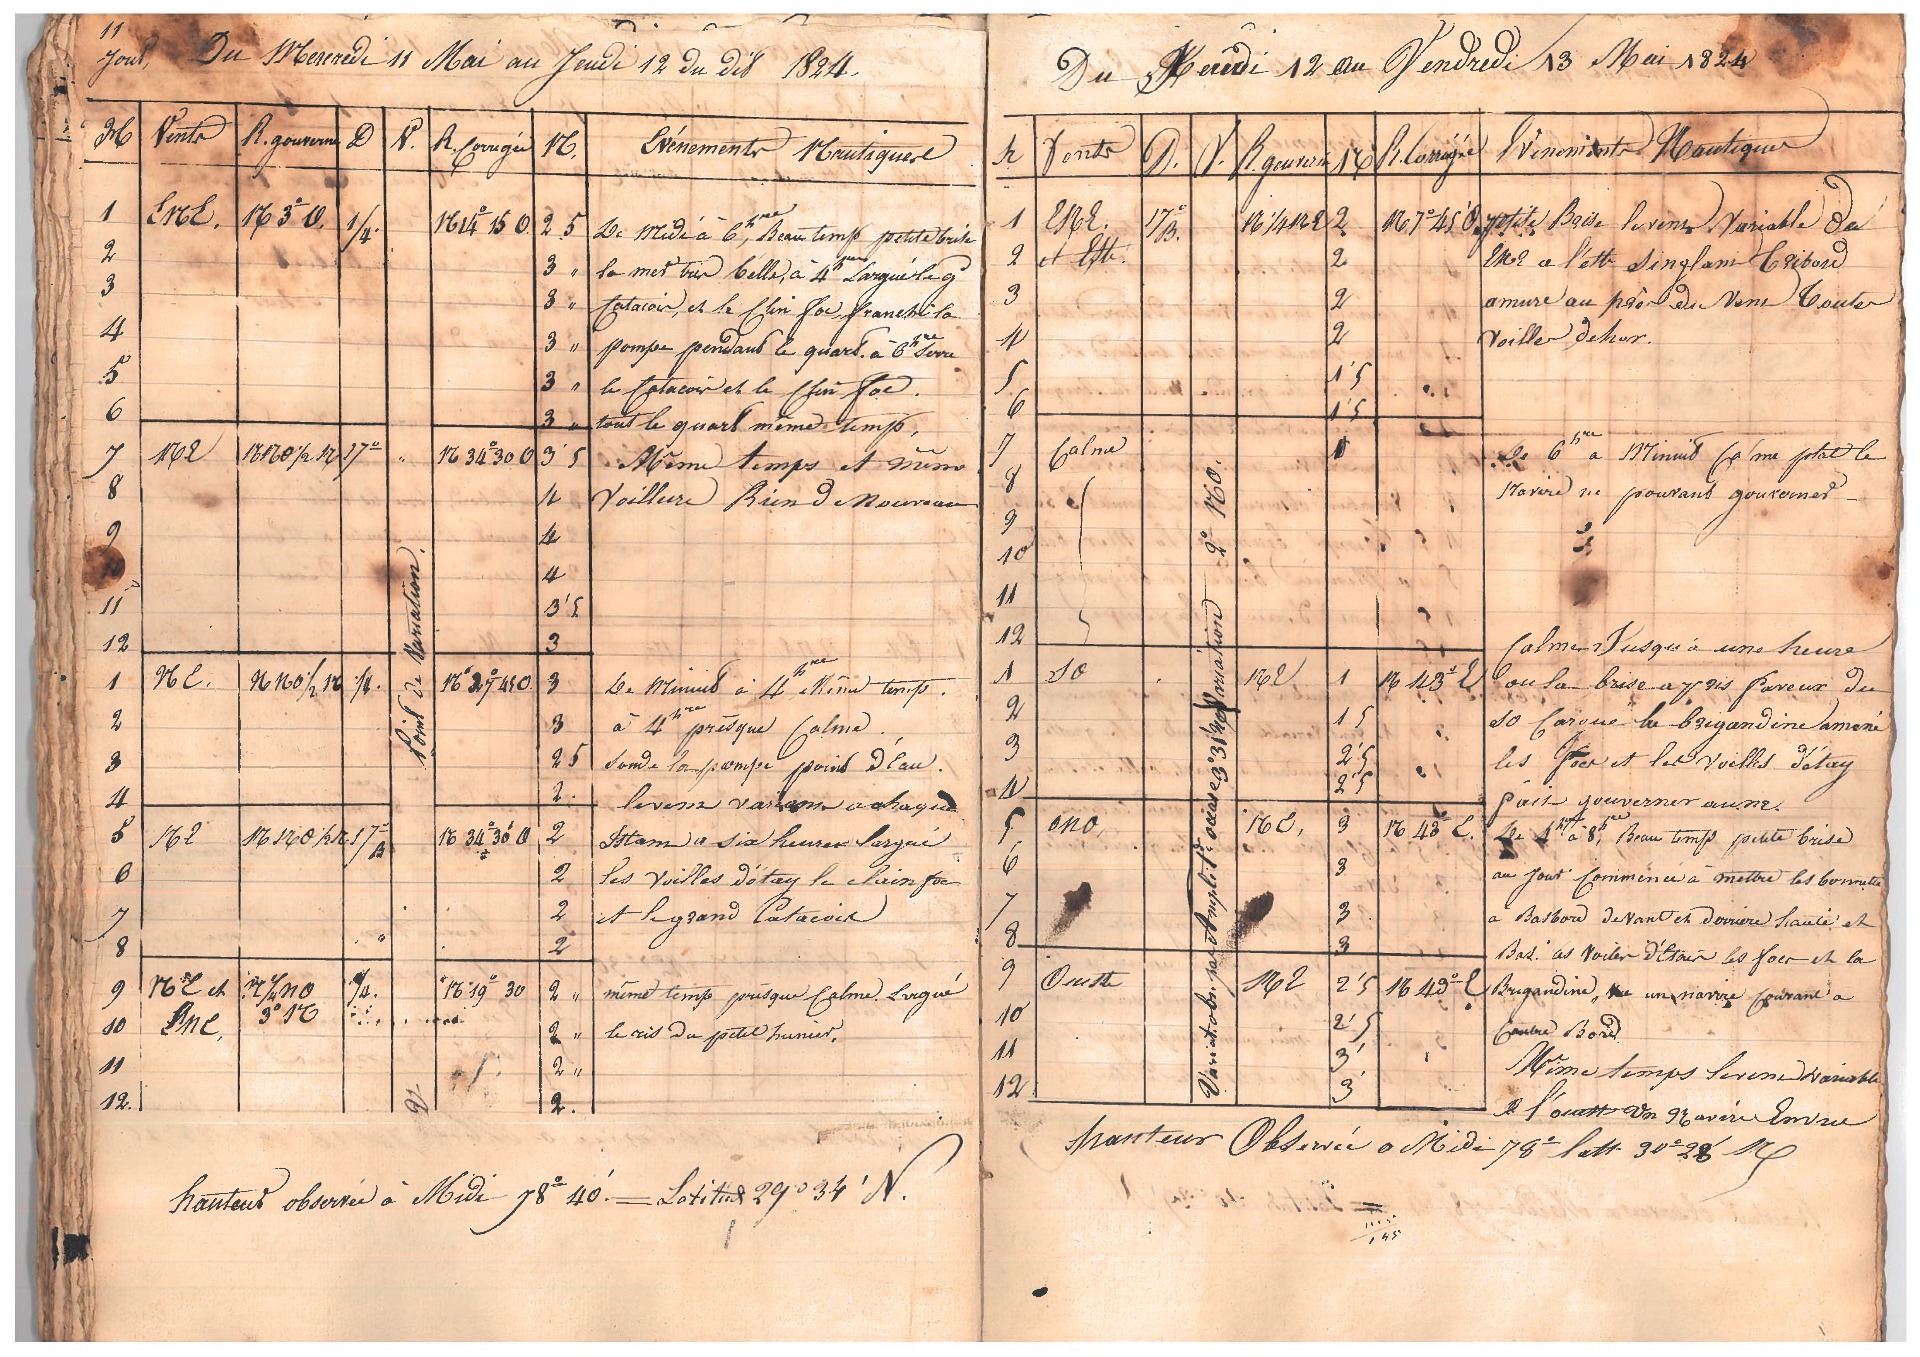 11
Jour. Du Mercredi 11 Mai au Jeudi 12 du dit 1824.
H Vents R. gouverné D V. R. Corrigée N. Evénements Nautiques
1 ENE. N 3° O. 1/4. N 14° 15 O. 2 5 De Midi à 6 hre, Beau temps petite brise
2 3 " la mer très belle, à 4 hres Largué le gd
3 3 " Catacoir, et le Clin foc franchi la
4 3 " pompe pendant le quart. à 6 hre Serré
5 3 " le Catacoir et le Clin foc.
6 3 " tout le quart même temp.
7 NE NNO 1/2 N 17° " N 34° 30 O 3'5 Même temps et même
8 4 Voillure Rien d Nouveau
9 4
4
11 3'5
12 3
1 NE. NNO 1/2 N 1/4. N 27° 45 O. 3 De Minuit à 4 hre Même temp.
2 3 à 4 hre présque Calme.
3 2 5 Sonde la pompe point d'Eau.
4 2. le vens variens a chaque
5 NE NNO 1/2 N 17° B N 34° 30 O 2 Istans a six heures largué
6 2 les Voilles d'étay le clain foc
7 2 et le grand Catacoir
8 " 2
9 NE et N 1/4 NO 1/4. N 19° 30 2 " même temp présque Calme. Largué
10 ENE. 3° N 2 " le ris du petit hunier.
11 2 "
12. 2.
Point de Variation.
hauteur observée à Midi 78° 40'. — Latitude 29° 34' N.
Du Jeudi 12 au Vendredi 13 Mai 1824
h Vents D. V. R. gouverné N R. Corrigée Evénements Nautiques
1 ENE. 17° B. N 1/4 NE 2 N 7° 45' O. petite Brise le vens Variable de
2 et Est. 2 ENE a l'estt Singlant Tribord
3 2 amure au près du Vens Toutes
4 2 Voilles dehor.
5 1'5
6 1'5
7 Calme 1 De 6 hre a Minuit Calme plat le
8 Navire ne pouvant gouverner
9
10
11
12 Calme Jusqu'à une heure
1 SO NE 1 N 43° E ou la brise a pris faveur du
2 1 5 SO Cargué la brigandine amené
3 2'5 les focs et les Voilles d'étay
4 2'5 fait gouverner au NE.
5 ONO. NE, 3 N 43° E. De 4 hre à 8 hre, Beau temp petite brise
6 3 au jour Commencé à mettre les bonnette
7 3 a Basbord devant et derrière haute et
8 3 Bas.
9 Ouestt NE 2'5 N 43° E Brigandine, Vue un navire Courant a
10 2'5 Contre Bord
11 3' Même temps le vens variable
12 3' a l'ouestt Un Navire En vue
Variation 2° NO.
hauteur Observée a Midi 78° latt 30° 28' N